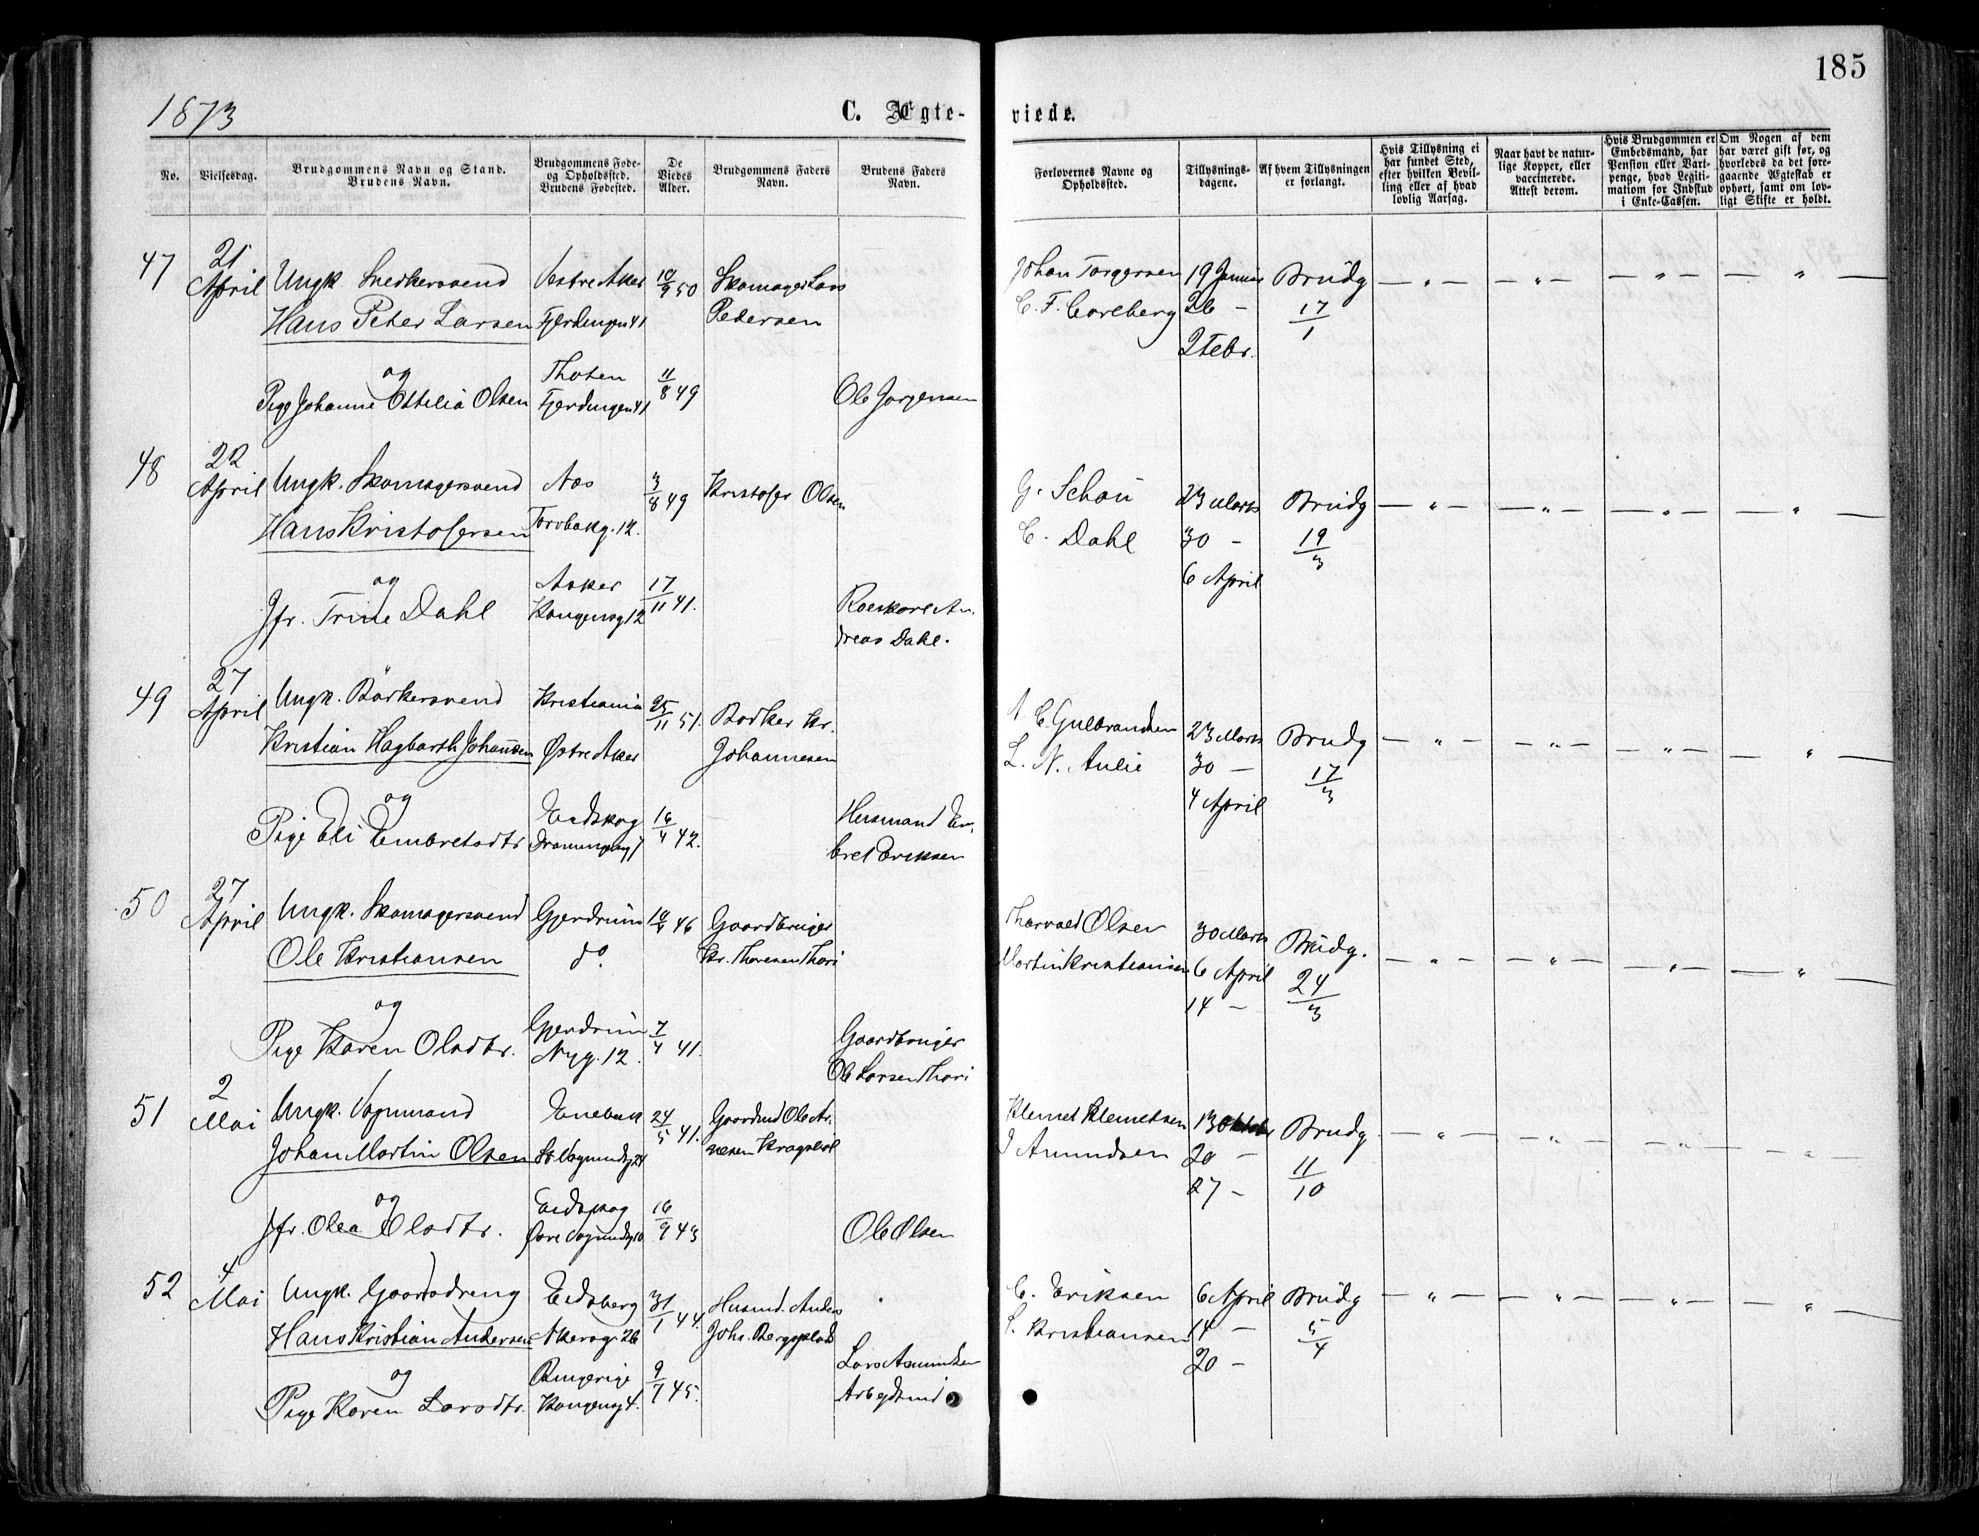 185
1873
C. Ægte-
viede.
No.
Vielsesdag.
Brudgommens Navn og Stand.
Brudens Navn.
Brudgommens Føde-
og Opholdssted.
Brudens Fødested.
De
Viedes
Alder.
Brudgommens Faders
Navn.
Brudens Faders
Navn.
Forlovernes Navne og
Opholdssted.
Tillysnings-
dagene.
Af hvem Tillysningen
er forlangt.
Hvis Tillysning ei
har fundet Sted,
efter hvilken Bevil-
ling eller af hvad
lovlig Aarsag.
Naar havt de natur-
lige Kopper, eller
vaccinerede.
Attest derom.
Hvis Brudgommen er
Embedsmand, har
Pension eller Vart-
penge, hvad Legiti-
mation for Indskud
i Enke-Cassen.
Om Nogen af dem
har været gift før, og
hvorledes da det fore-
gaaende Ægteskab er
ophørt, samt om lov-
ligt Skifte er holdt.
47
21
April
Ungk Snedkersvend
Hans Peter Larsen
og
Pige Johanne Ottilia Olsen
Vestre Aker
Fjerdingen 41
Thoten
Fjerdingen 41
10/9 50
11/8 49
Skomager Lars
Pedersen
Ole Jørgensen
Johan Torgersen
C. F. Carlberg
19 Januar
26 –
2 Febr.
Brudg
17/1
48
22
April
Ungk. Skomagersvend
Hans Kristofersen
og
Jfr. Trine Dahl
Næs
Torvbakg. 12.
Asker
Kongensg 12
3/8 49
17/11 41.
Kristofer Olsen
Roeskarl An-
dreas Dahl.
G. Schou
C. Dahl
23 Marts
30 –
6 April
Brudg
19/3
49
27
April
Ungk. Bødkersvend
Kristian Hagbarth Johansen
og
Pige Eli Embretsdtr
Kristiania
Østre Aker
Eidskog
Drammensveg 7
25/11 51.
16/4 42.
Bødker Kr.
Johannesen
Husmand Em-
bret Eriksen
C. Gulbrandsen
L. N. Aulie
23 Marts
30 –
4 April
Brudg
17/3
50
27
April
Ungk. Skomagersvend
Ole Kristiansen
og
Pige Karen Olsdtr.
Gjerdrum
do.
Gjerdrum
Nyg. 12
46
7/4 41.
Gaardbruger
Kr. Thoresen Thori
Gaardbruger
Ole Larsen Thori
Thorvald Olsen
Martin Kristiansen
30 Marts
6 April
14 –
Brudg.
24/3
51
2
Mai
Ungk. Vognmand
Johan Martin Olsen
og
Jfr. Olea Olsdtr.
Enebak
St. Vognmandsg 24
Eidskog
Øvre Vognmdsg 10
24/5 41.
16/9 43
Gaardmd Ole Ar-
nesen Kragsled
Ole Olsen
Klemet Klemetsen
J Amundsen
13 Oktobr
20 –
27 –
Brudg
11/10
52
4
Mai
Ungk. Gaardsdreng
Hans Kristian Andersen
og
Pige Karen Larsdtr.
Eidsberg
Akersg. 26
Ringerige
Kongensg 4.
31/1 44.
9/7 45.
Husmd. Anders
Johs. Bergsplads
Lars Asmundsen
Arbeidsmd
C. Eriksen
L. Kristiansen
6 April
14 –
20 –
Brudg
5/4